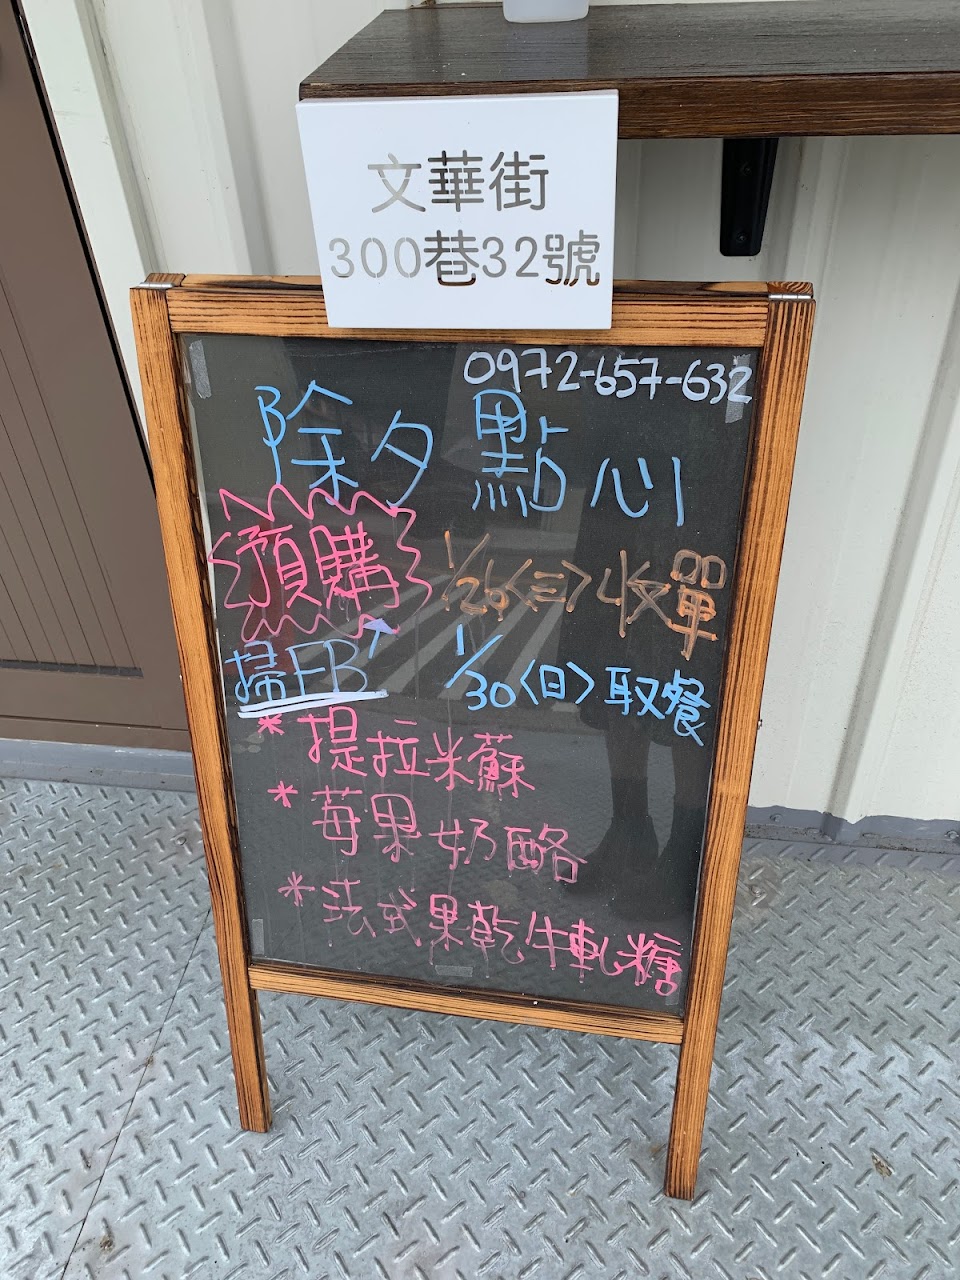 文華街
300巷32號
0972-657-632
除夕點心
預購 1/26<三>收單
掃FB 1/30<日>取餐
*提拉米蘇
*莓果奶酪
*法式果乾牛軋糖